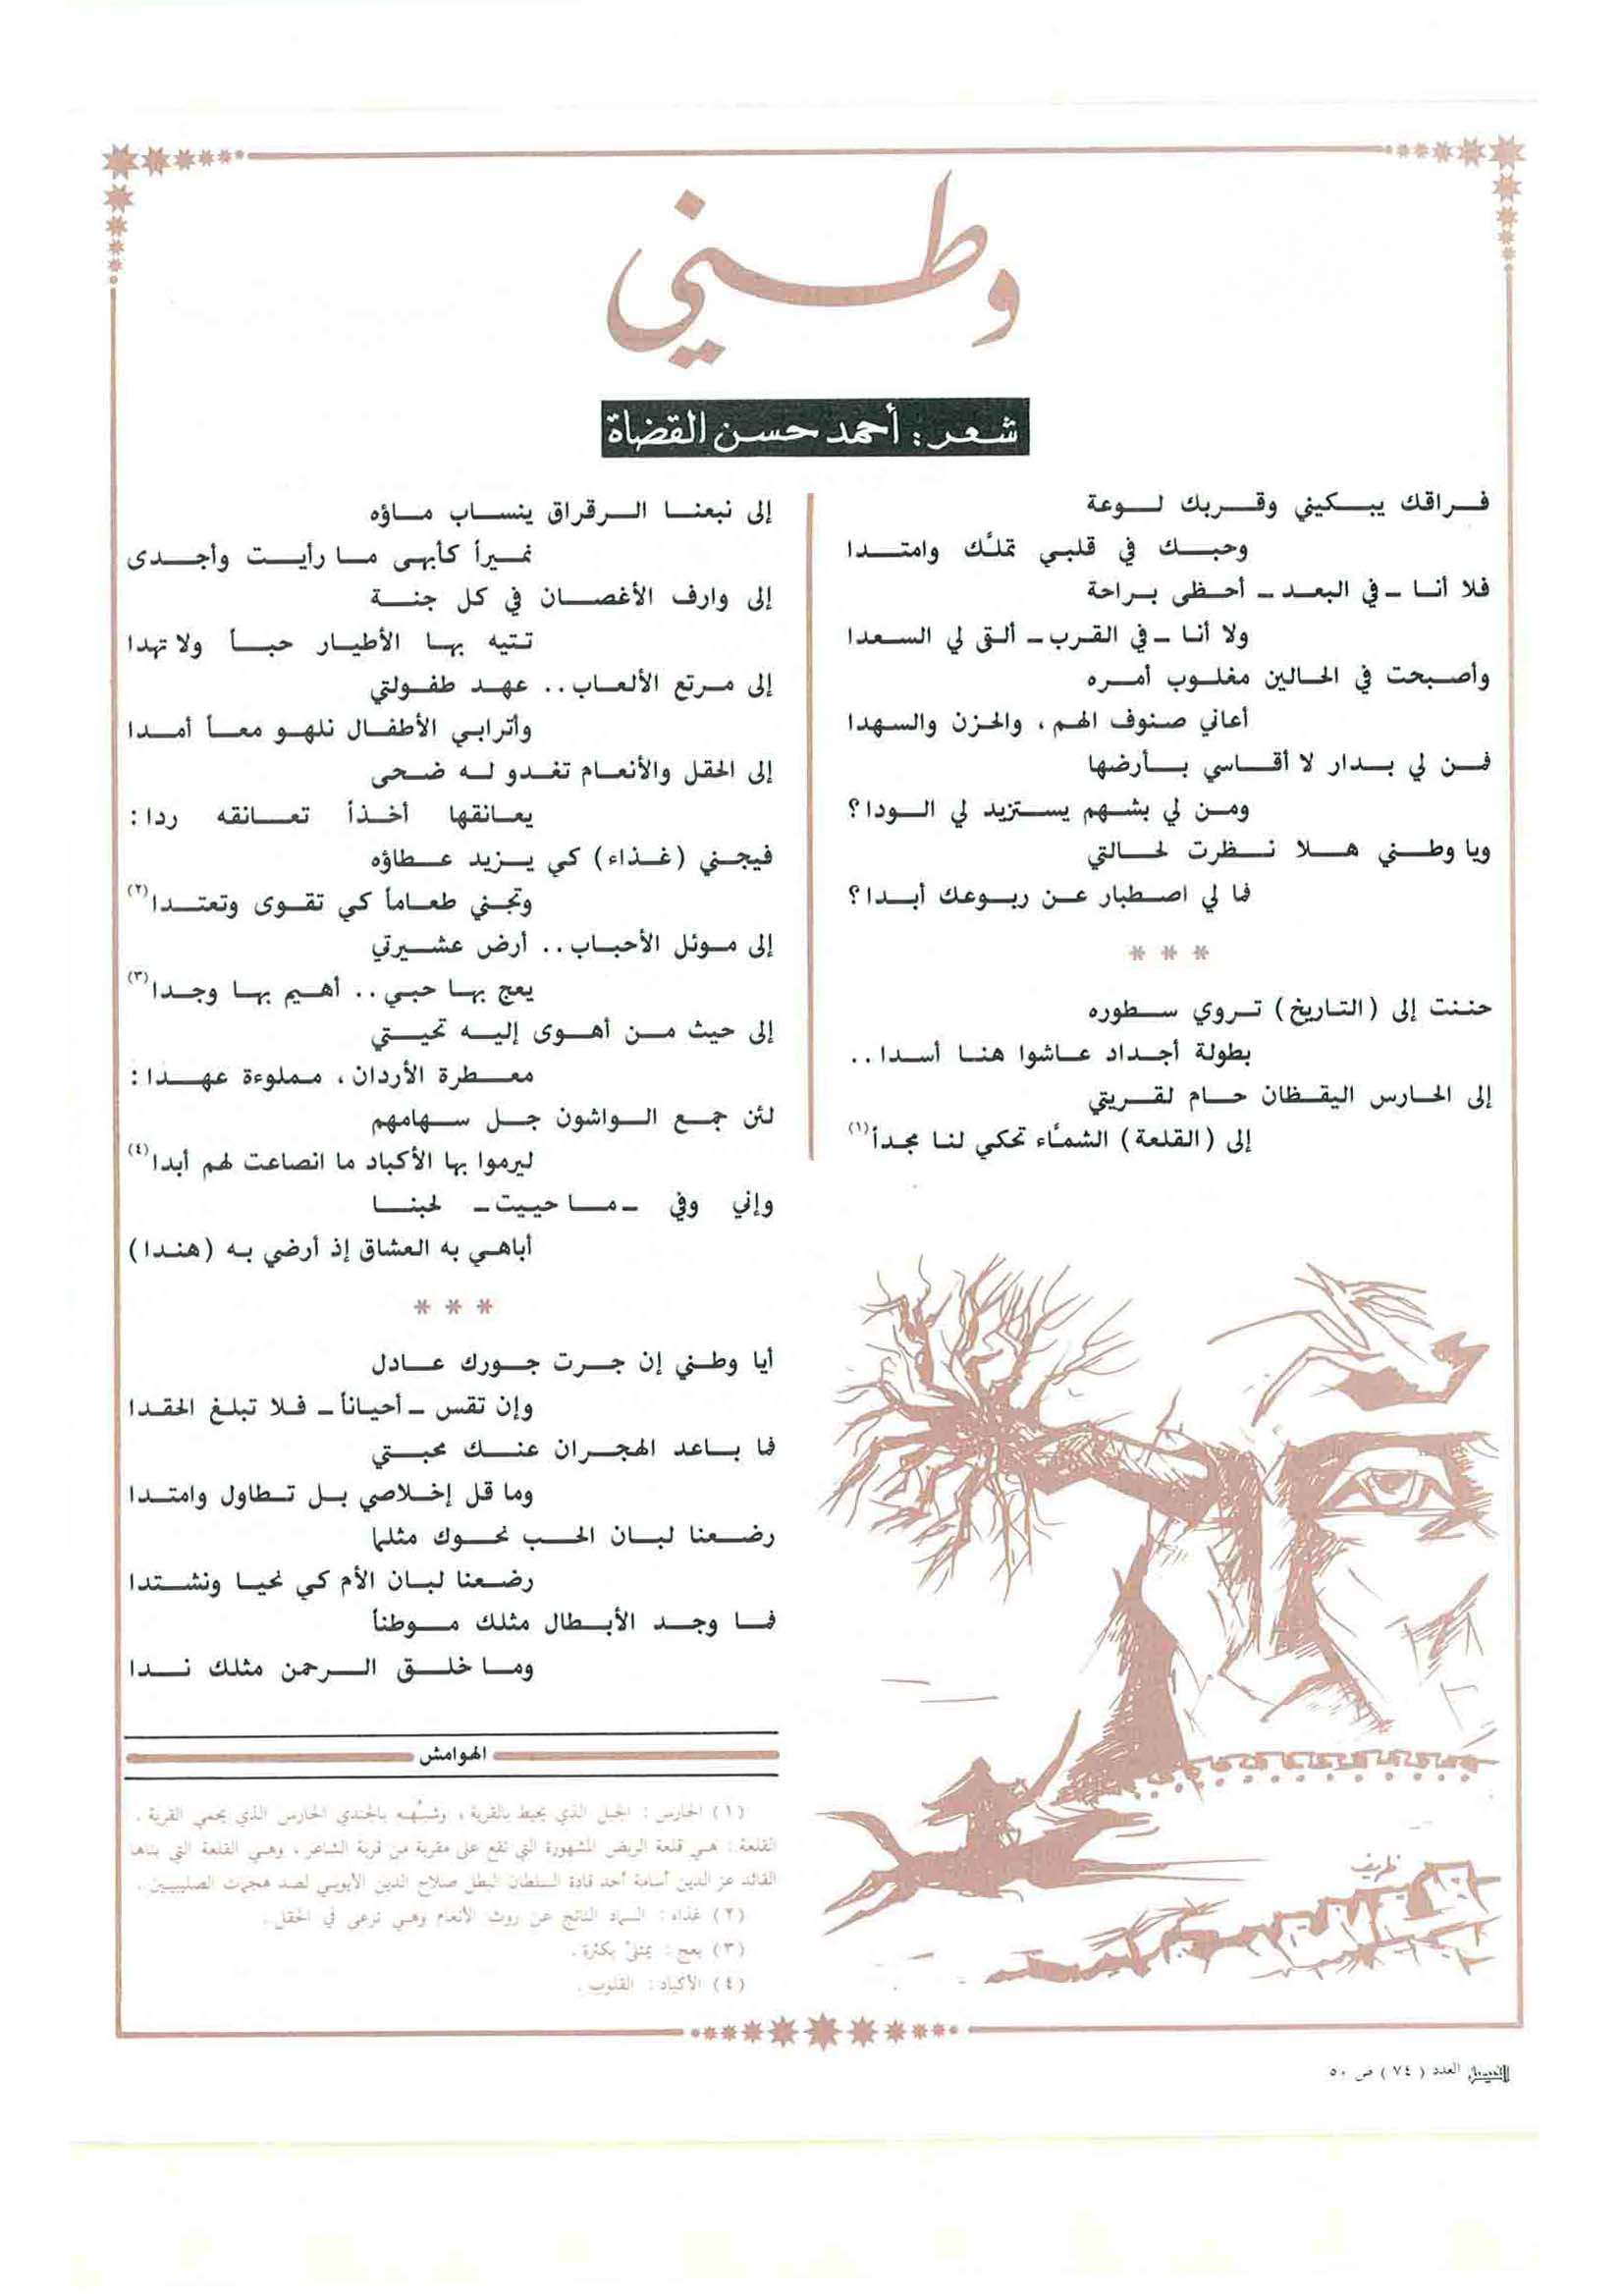 وطني
شعر: أحمد حسن القضاة
فراقك يبكيني وقربك لوعة
وحبك في قلبي تملّك وامتدا
فلا أنا - في البعد - أحظى براحة
ولا أنا - في القرب - ألقى لي السعدا
وأصبحت في الحالين مغلوب أمره
أعاني صنوف الهم، والحزن والسهدا
فمن لي بدار لا أقاسي بأرضها
ومن لي بشهم يستزيد لي الودا؟
ويا وطني هلا نظرت لحالتي
فما لي اصطبار عن ربوعك أبدا؟
* * *
حننت إلى (التاريخ) تروي سطوره
بطولة أجداد عاشوا هنا أسدا..
إلى الحارس اليقظان حام لقريتي
إلى (القلعة) الشمّاء تحكي لنا مجداً(١)
إلى نبعنا الرقراق ينساب ماؤه
نميراً كأبهى ما رأيت وأجدى
إلى وارف الأغصان في كل جنة
تتيه بها الأطيار حباً ولا تهدا
إلى مرتع الألعاب.. عهد طفولتي
وأترابي الأطفال نلهو معاً أمدا
إلى الحقل والأنعام تغدو له ضحى
يعانقها أخذاً تعانقه ردا:
فيجني (غذاء) كي يزيد عطاؤه
وتجني طعاماً كي تقوى وتعتدا(٢)
إلى موئل الأحباب.. أرض عشيرتي
يعج بها حبي.. أهيم بها وجدا(٣)
إلى حيث من أهوى إليه تحيتي
معطرة الأردان، مملوءة عهدا:
لئن جمع الواشون جل سهامهم
ليرموا بها الأكباد ما انصاعت لهم أبدا(٤)
وإني وفي - ما حييت - لحبنا
أباهي به العشاق إذ أرضي به (هندا)
* * *
أيا وطني إن جرت جورك عادل
وإن تقس - أحياناً - فلا تبلغ الحقدا
فما باعد الهجران عنك محبتي
وما قل إخلاصي بل تطاول وامتدا
رضعنا لبان الحب نحوك مثلما
رضعنا لبان الأم كي نحيا ونشتدا
فما وجد الأبطال مثلك موطناً
وما خلق الرحمن مثلك ندا
الهوامش
(١) الحارس: الجبل الذي يحيط بالقرية، وشبّهه بالجندي الحارس الذي يحمي القرية.
القلعة: هي قلعة الربض المشهورة التي تقع على مقربة من قرية الشاعر، وهي القلعة التي بناها
القائد عز الدين أسامة أحد قادة السلطان البطل صلاح الدين الأيوبي لصد هجمات الصليبيين.
(٢) غذاء: السماد الناتج عن روث الأنعام وهي ترعى في الحقل.
(٣) يعج: يمتلئ بكثرة.
(٤) الأكباد: القلوب.
ظريف
الفيصل العدد (٧٤) ص ٥٠